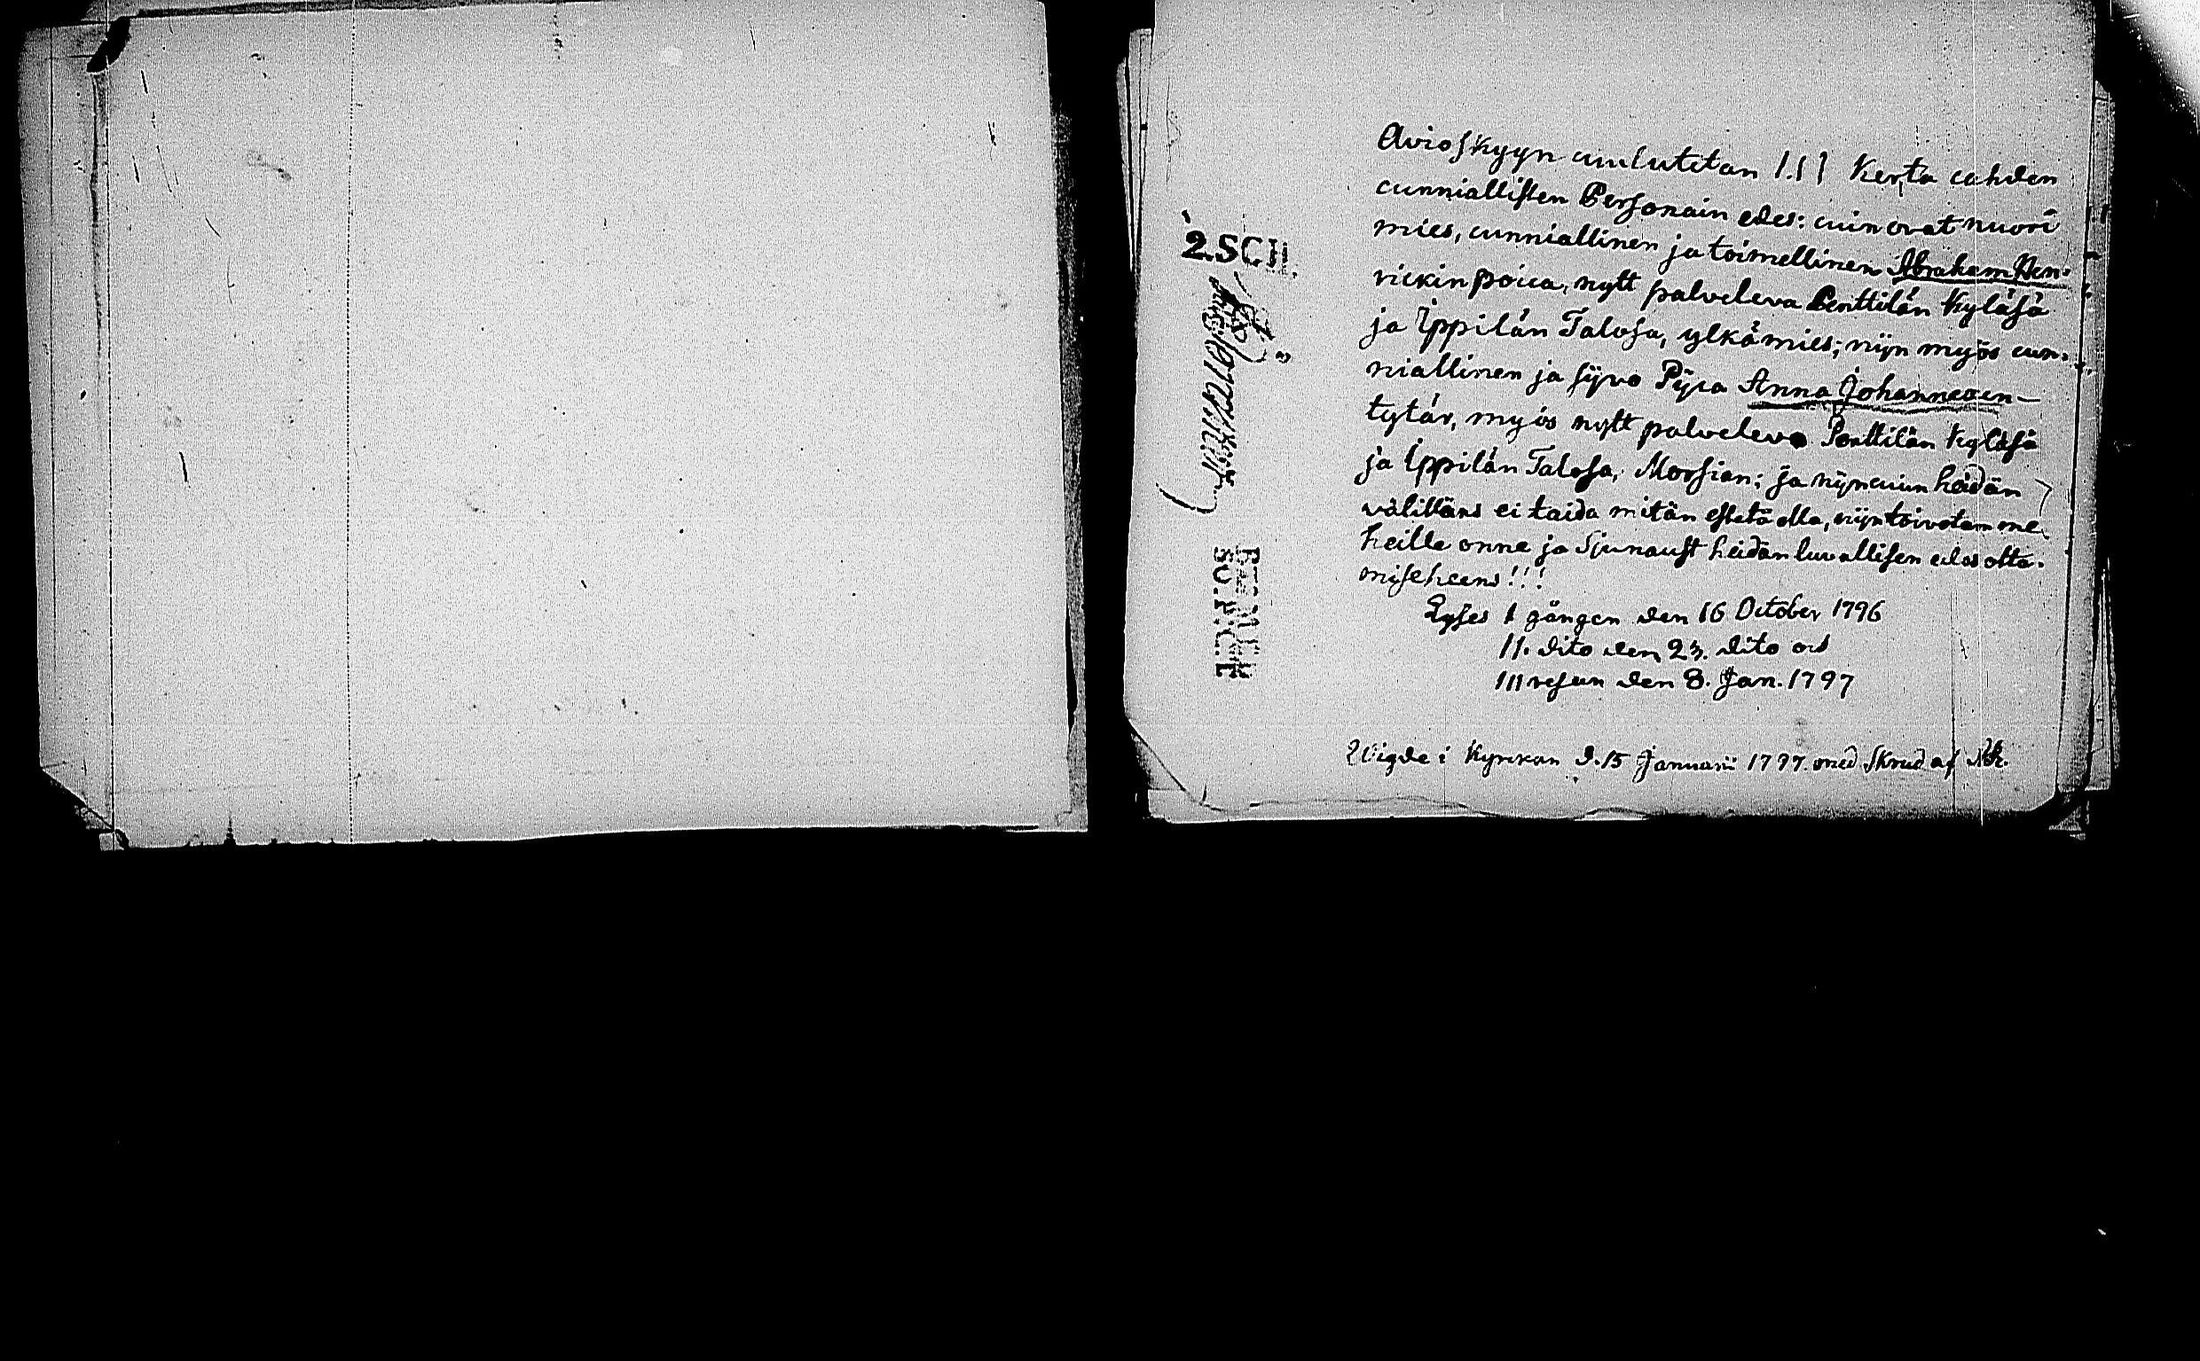 2.SCH.
Avioskyyn cuulutetan I.II Kerta cahden
cunniallisten Personain edes: cuin ovat nuori
mies, cunniallinen ja toimellinen Abraham Hen-
rickin poica, nytt palveleva Penttilän Kyläsä
ja Ippilän Talosa, ylkämies; nijn myös cun-
niallinen ja sijvo Pijca Anna Johannexen-
tytär, myös nytt palveleva Penttilän Kyläsä
ja Ippilän Talosa, Morsian; ja nijncuin heidän
välilläns ei taida mitän estetä olla, nijn toivotamme
heille onne ja Sjunaust heidän luvallisen edesotta-
miseheens!!!
Lyses 1 gången den 16 October 1796
II. dito den 23. dito och
III resan den 8. Jan. 1797
Wigde i Kyrckan d. 15 Januarii 1797. med Skrud af